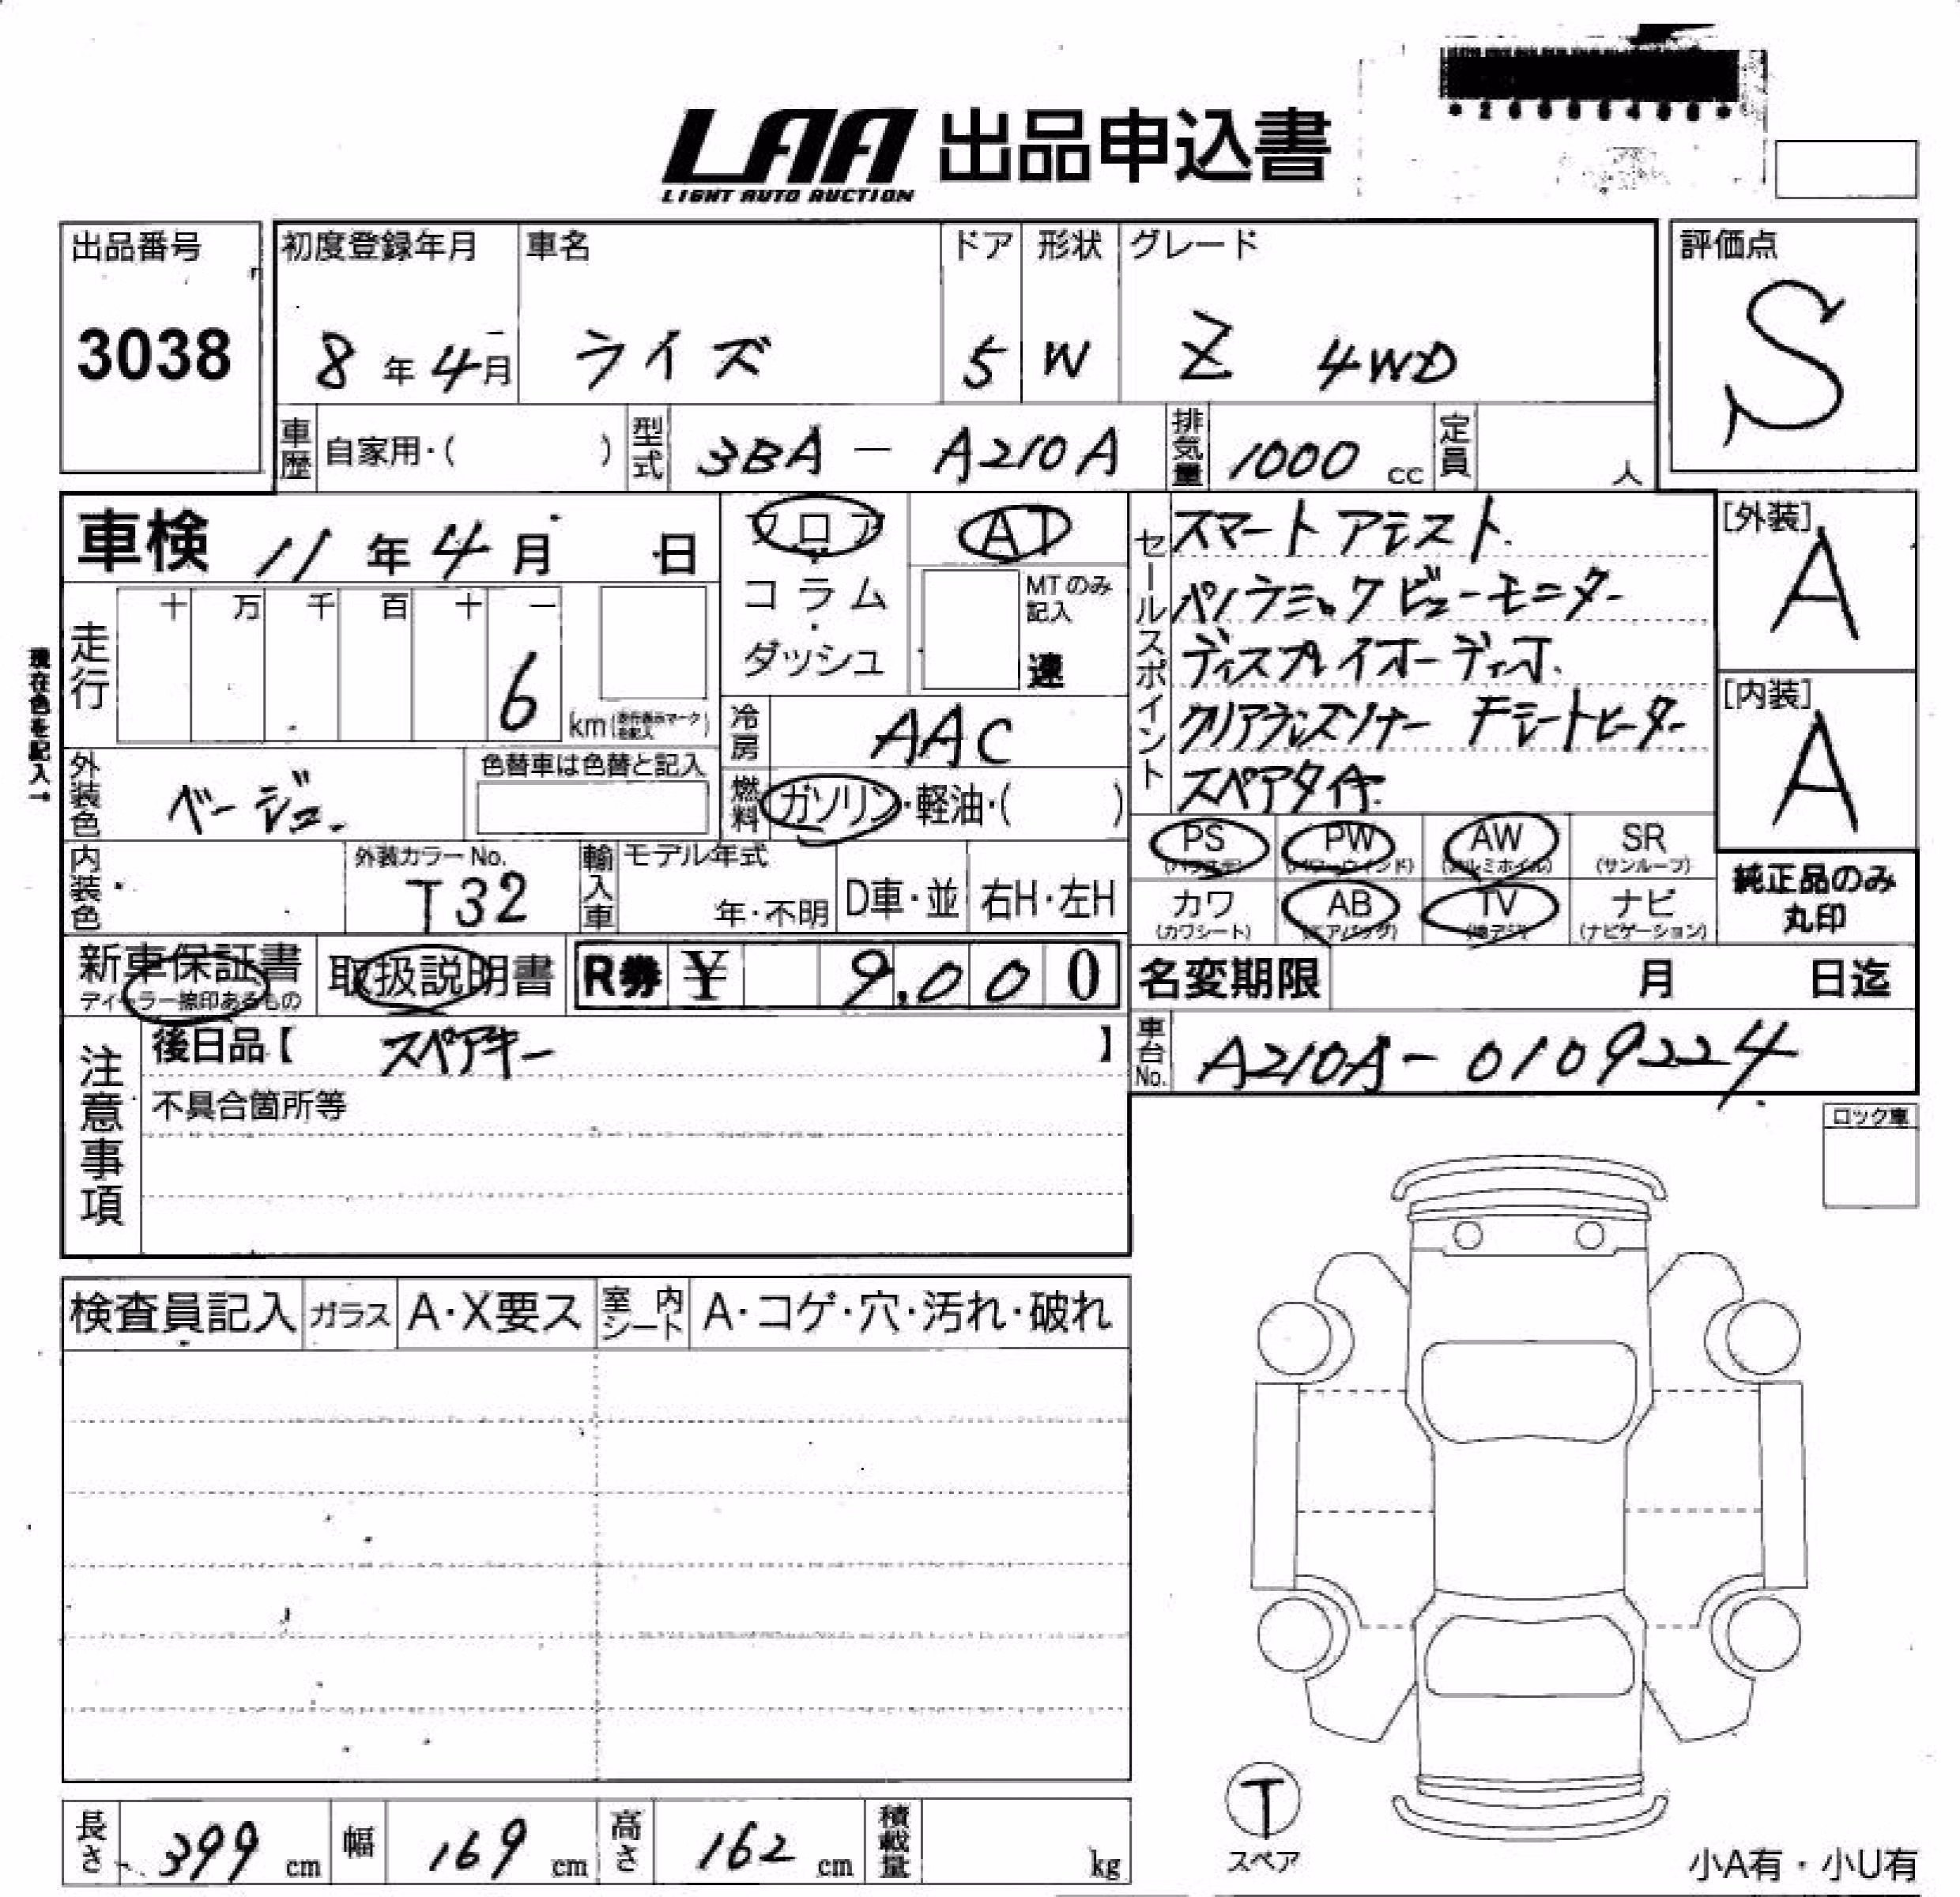 LAA 出品申込書
LIGHT AUTO AUCTION
出品番号
3038
初度登録年月
8年4月
車名
ライズ
ドア
5
形状
W
グレード
Z 4WD
評価点
S
車歴 自家用・( )
型式 3BA - A210A
排気量 1000 cc
定員 人
車検 11年4月 日
フロア・コラム・ダッシュ
AT
MTのみ記入
速
セールスポイント
スマートアシスト
パノラミックビューモニター
ディスプレイオーディオ
クリアランスソナー シートヒーター
スペアタイヤ
[外装]
A
[内装]
A
現在色を記入→
走行
十 万 千 百 十 一
6
km(走行表示マークを記入)
冷房 AAC
外装色 ベージュ
色替車は色替と記入
燃料 ガソリン・軽油・( )
内装色
外装カラーNo.
T32
輸入車
モデル年式
年・不明
D車・並
右H・左H
PS
(パワステ)
PW
(パワーウインド)
AW
(アルミホイル)
SR
(サンルーフ)
カワ
(カワシート)
AB
(エアバッグ)
TV
(地デジ)
ナビ
(ナビゲーション)
純正品のみ
丸印
新車保証書
ディーラー捺印あるもの
取扱説明書
R券 ¥ 9,000
名変期限 月 日迄
注意事項
後日品【 スペアキー 】
不具合箇所等
車台No. A210A-0109224
ロック車
検査員記入
ガラス
A・X要ス
室内シート
A・コゲ・穴・汚れ・破れ
T
スペア
長さ 399 cm
幅 169 cm
高さ 162 cm
積載量 kg
小A有・小U有